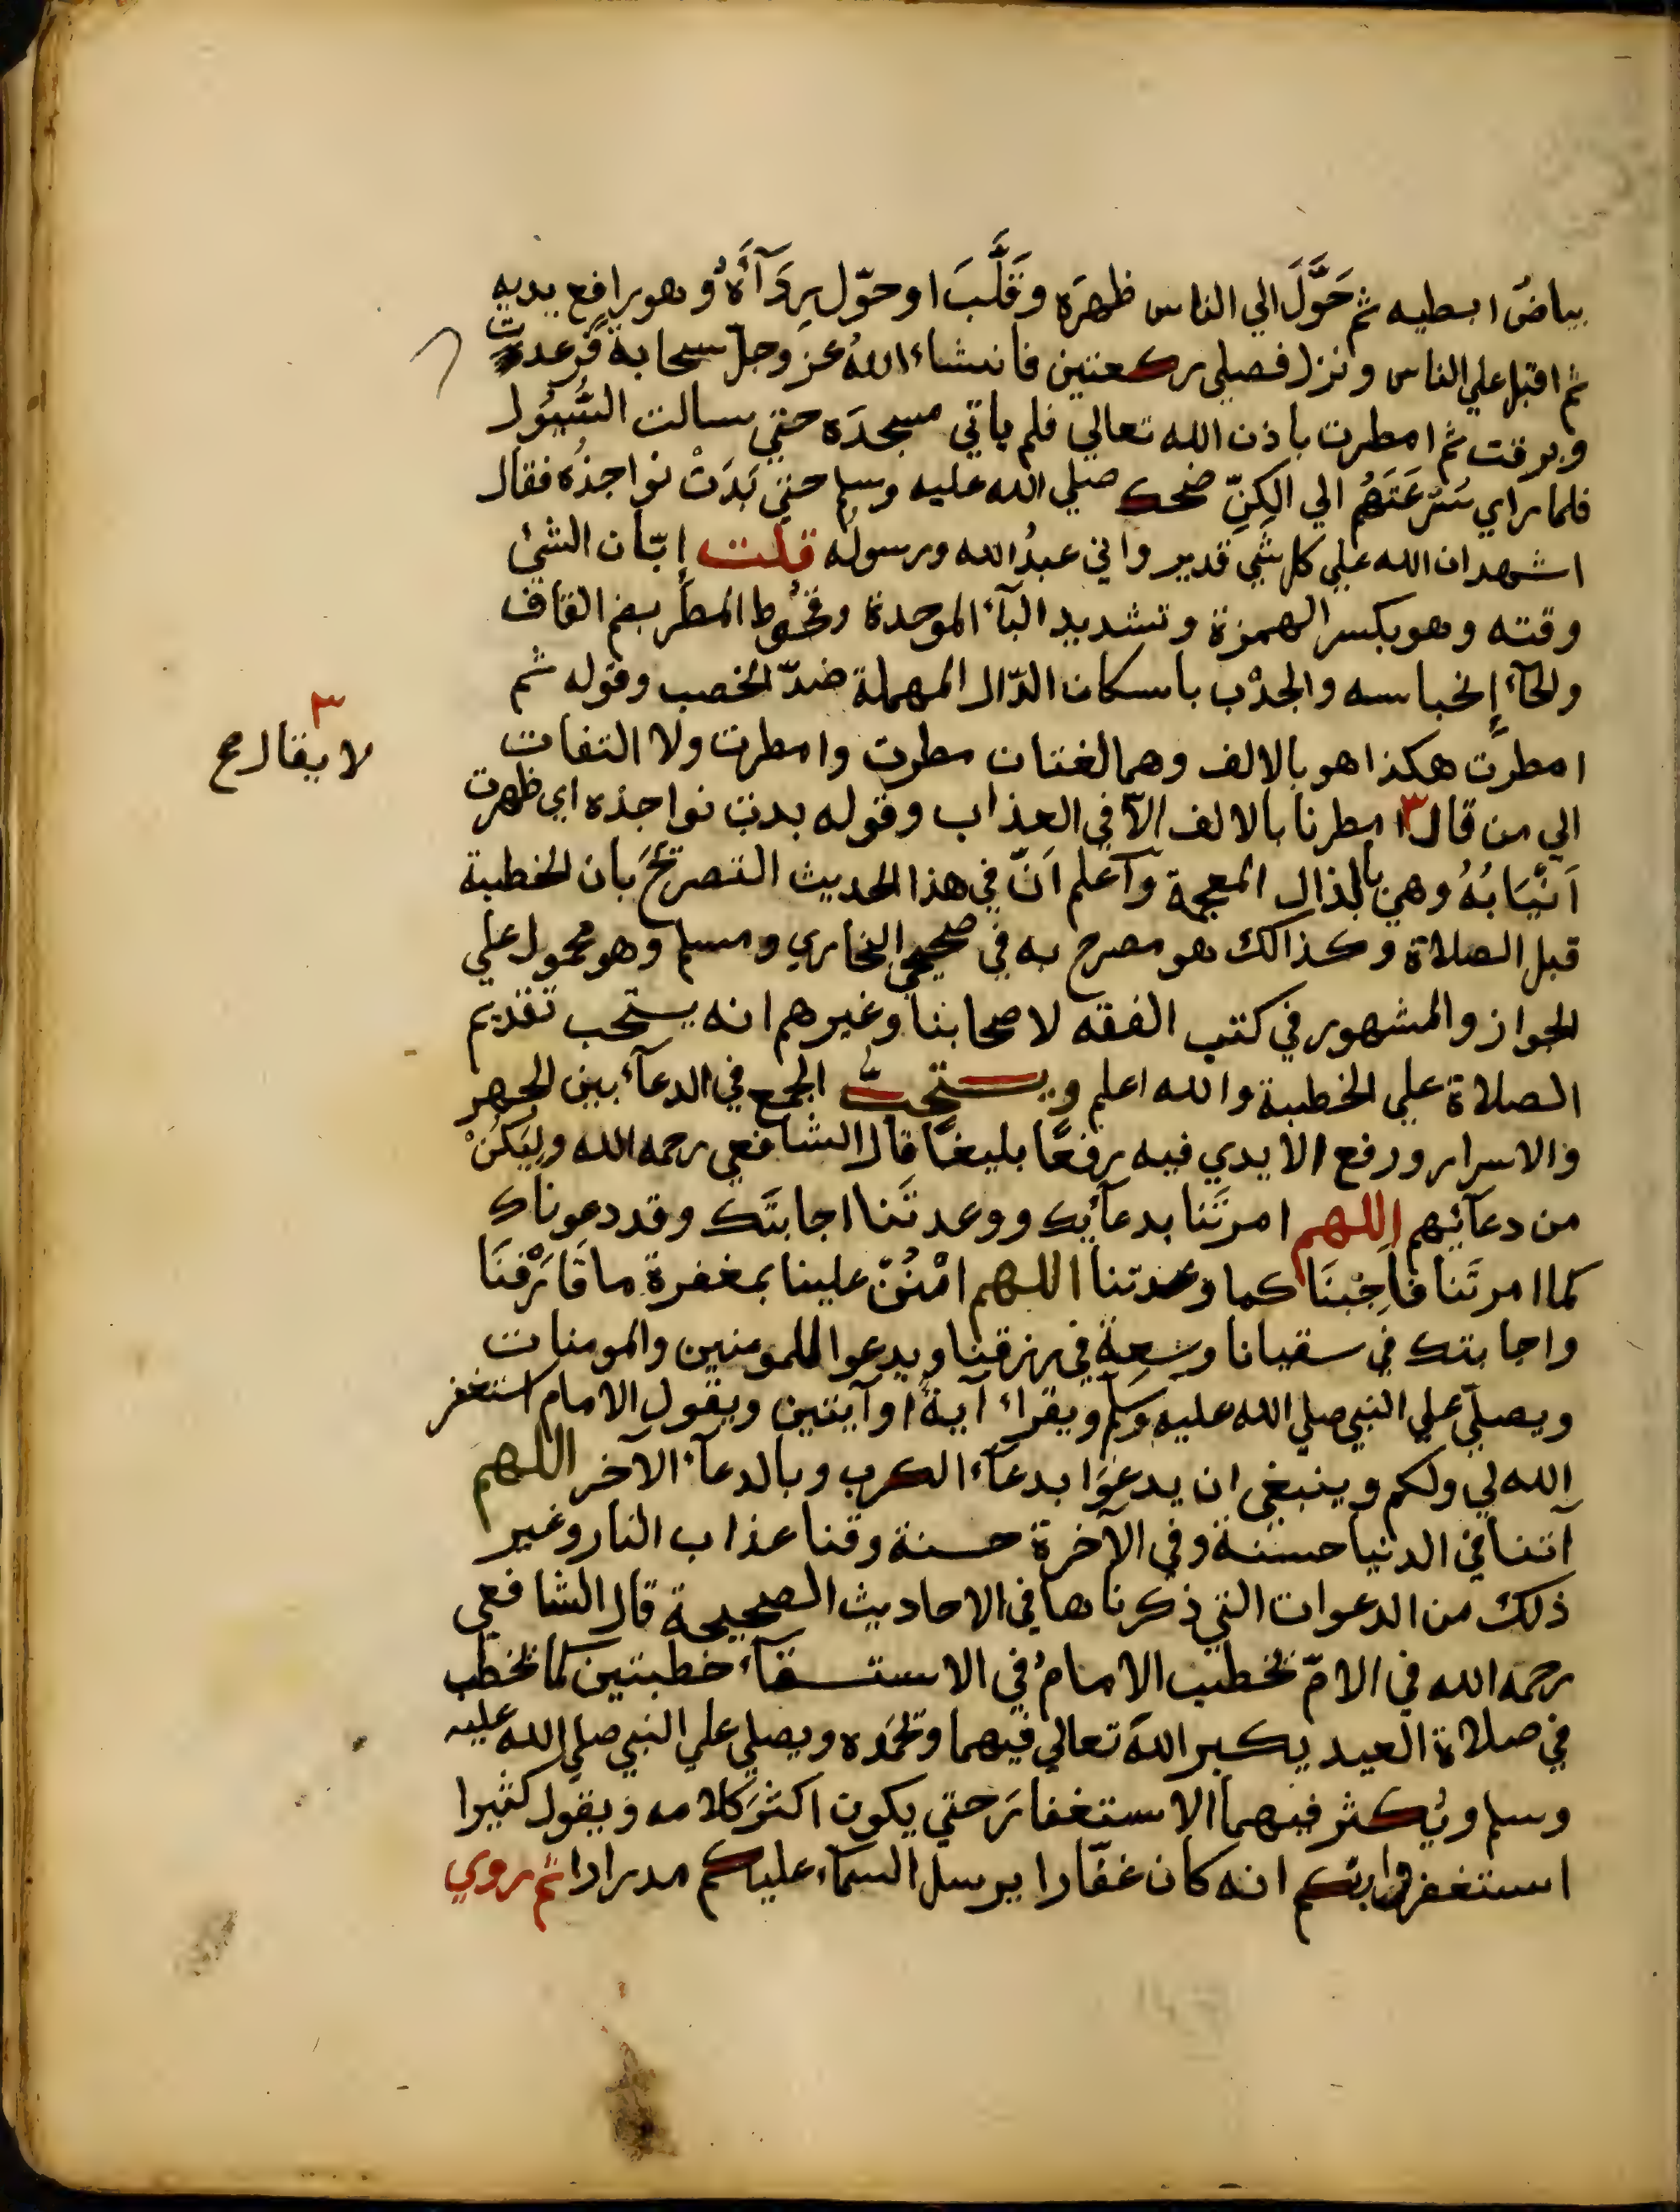 بياضُ ابطيه ثم حَوَّلَ الي الناس ظهرَه وقَلَّبَ او حوّل رِدَآءَهُ وهو رافع يديه
ثم اقبل علي الناس ونزل فصلي ركعتين فانشاء اللهُ عز وجل سحابة فرعدت
وبرقت ثم امطرت باذن الله تعالي فلم ياتي مسجدَه حتي سالت السُّيُول
فلما راي سُرْعَتَهُم الي الكِنّ ضحك صلي الله عليه وسلم حتي بَدَتْ نواجذُه فقال
اشهد ان الله علي كل شي قدير واني عبدُ الله ورسوله قلت إبّان الشئ
وقته وهو بكسر الهمزة وتشديد البآء الموحدة وقحُوط المطر بضم القاف
والحآء إنحباسه والجدْب باسكان الدّال المهملة ضدّ الخصب وقوله ثم
امطرت هكذا هو بالالف وهما لغتان مطرت وامطرت ولا التفات
الي من قال ٣ امطرنا بالالف الا في العذاب وقوله بدت نواجذه اي ظهرت
٣ لا يقال صح
اَنْيَابُهُ وهي بالذال المعجمة وآعلم اَنّ في هذا الحديث التصريحَ بان الخطبة
قبل الصلاة وكذالك هو مصرح به في صحيحي البخاري ومسلم وهو محمول علي
الجواز والمشهور في كتب الفقه لاصحابنا وغيرهم انه يستحب تقديم
الصلاة علي الخطبة والله اعلم ويستحبُّ الجمع في الدعآء بين الجهر
والاسرار ورفع الايدي فيه رفعًا بليغًا قال الشافعي رحمه الله وليَكُنْ
من دعآئهم اللهم امرتَنا بدعآئك ووعدتَنا اجابتَك وقد دعوناك
كما امرتَنا فاَجِبْنَا كما وعدتنا اللهم امْنُنْ علينا بمغفرة ما قَارَفْنَا
واجابتك في سقيانا وسِعة في رزقنا ويدعوا للمومنين والمومنات
ويصلّي علي النبي صلي الله عليه وسلم ويقراء آيةً او آيتين ويقول الامام استغفر
الله لي ولكم وينبغي ان يدعُوَا بدعآء الكرب وبالدعآء الآخر اللهم
آتنا في الدنيا حسنة وفي الآخرة حسنة وقنا عذاب النار وغير
ذلك من الدعوات التي ذكرناها في الاحاديث الصحيحة قال الشافعي
رحمه الله في الامّ يخطب الامامُ في الاستسقآء خطبتين كما يخطب
في صلاة العيد يكبر اللهَ تعالي فيهما ويحمَده ويصلي علي النبي صلي الله عليه
وسلم ويُكثر فيهما الاستغفارَ حتي يكون اكثرَ كلامه ويقول كثيرا
استغفروا ربكم انه كان غفّارا يرسل السمآء عليكم مدرارا ثم روي